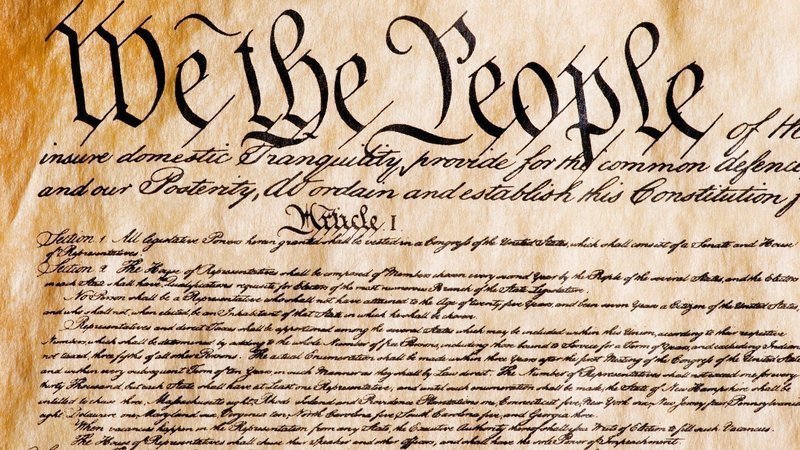 We the People of
insure domestic Tranquility, provide for the common defence
and our Posterity, do ordain and establish this Constitution f
Article I
Section 1. All legislative Powers herein granted shall be vested in a Congress of the United States, which shall consist of a Senate and House
of Representatives.
Section 2. The House of Representatives shall be composed of Members chosen every second Year by the People of the several States, and the Electors
in each State shall have Qualifications requisite for Electors of the most numerous Branch of the State Legislature.
No Person shall be a Representative who shall not have attained to the Age of twenty five Years, and been seven Years a Citizen of the United States,
and who shall not, when elected, be an Inhabitant of that State in which he shall be chosen.
Representatives and direct Taxes shall be apportioned among the several States which may be included within this Union, according to their respective
Numbers, which shall be determined by adding to the whole Number of free Persons, including those bound to Service for a Term of Years, and excluding Indians
not taxed, three fifths of all other Persons. The actual Enumeration shall be made within three Years after the first Meeting of the Congress of the United States
and within every subsequent Term of ten Years, in such Manner as they shall by Law direct. The Number of Representatives shall not exceed one for every
thirty Thousand, but each State shall have at Least one Representative; and until such enumeration shall be made, the State of New Hampshire shall be
entitled to chuse three, Massachusetts eight, Rhode Island and Providence Plantations one, Connecticut five, New York six, New Jersey four, Pennsylvania
eight, Delaware one, Maryland six, Virginia ten, North Carolina five, South Carolina five, and Georgia three.
When vacancies happen in the Representation from any State, the Executive Authority thereof shall issue Writs of Election to fill such Vacancies.
The House of Representatives shall chuse their Speaker and other Officers; and shall have the sole Power of Impeachment.